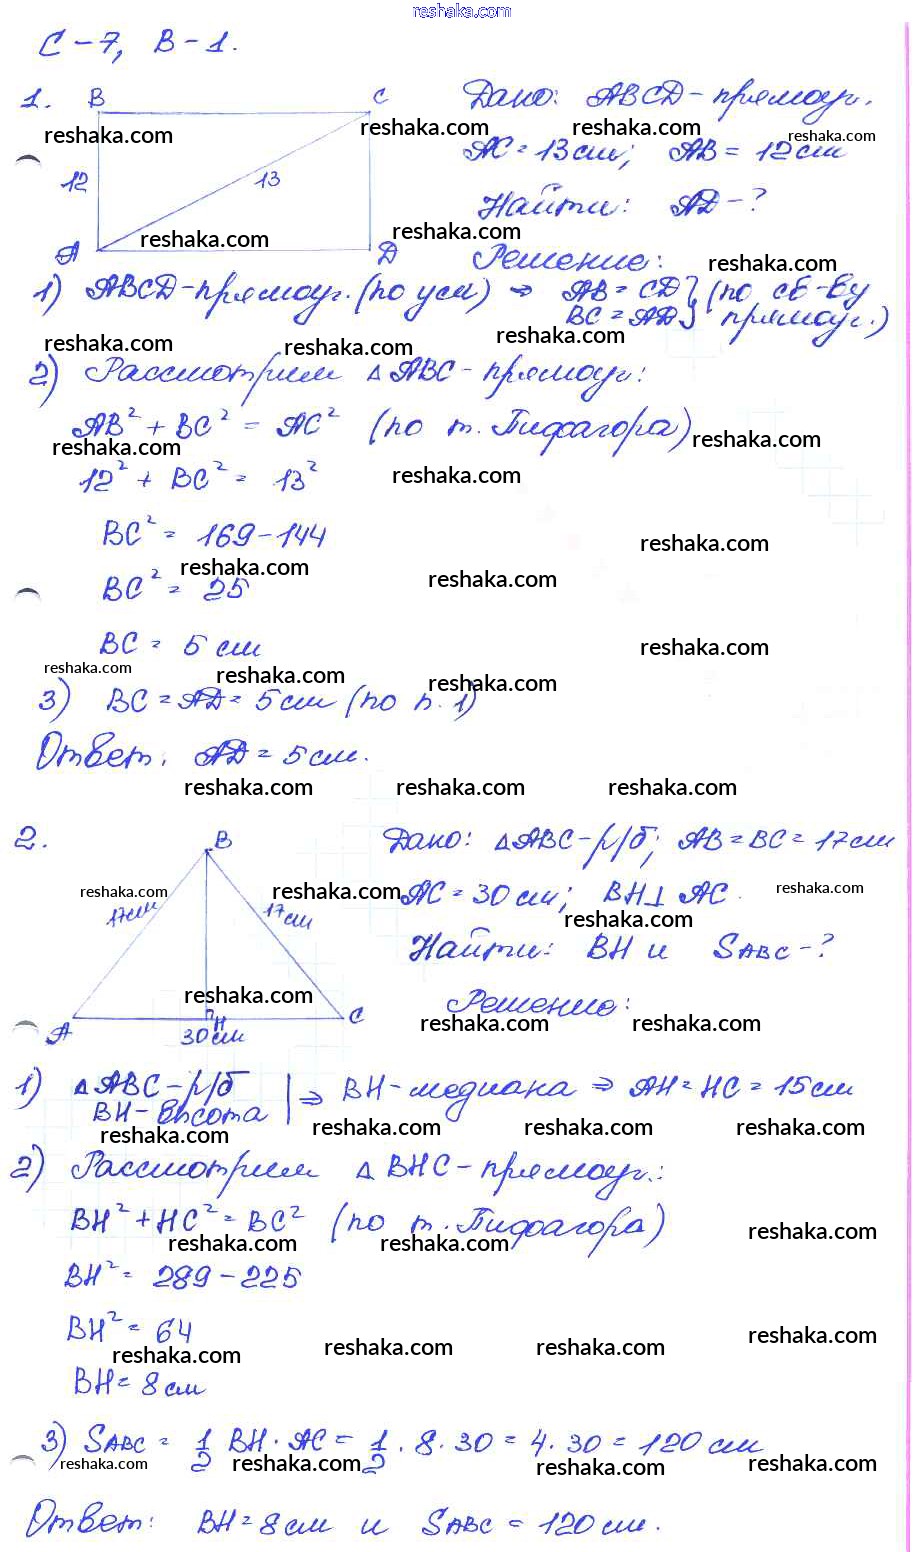 reshaka.com
С-7, В-1.
1. B C Дано: ABCD-прямоуг.
reshaka.com reshaka.com reshaka.com reshaka.com
12 13 AC = 13 см; AB = 12 см
Найти: AD-?
reshaka.com reshaka.com
A D Решение:
reshaka.com
1) ABCD-прямоуг. (по усл) ⇒ AB = CD } (по св-ву
BC = AD } прямоуг.)
reshaka.com reshaka.com reshaka.com
2) Рассмотрим △ABC-прямоуг:
AB² + BC² = AC² (по т. Пифагора)
reshaka.com reshaka.com
12² + BC² = 13²
reshaka.com
BC² = 169-144
reshaka.com
reshaka.com reshaka.com
BC² = 25
BC = 5 см
reshaka.com
reshaka.com reshaka.com reshaka.com
3) BC = AD = 5 см (по п. 1)
Ответ: AD = 5 см.
reshaka.com reshaka.com reshaka.com
2. B Дано: △ABC-р/б; AB = BC = 17 см
reshaka.com reshaka.com reshaka.com
17 см 17 см AC = 30 см; BH⊥AC.
reshaka.com
Найти: BH и SABC-?
reshaka.com
Решение:
A H C
reshaka.com reshaka.com
30 см
1) △ABC-р/б
BH-высота | ⇒ BH-медиана ⇒ AH = HC = 15 см
reshaka.com reshaka.com reshaka.com reshaka.com
2) Рассмотрим △BHC-прямоуг.:
BH² + HC² = BC² (по т. Пифагора)
reshaka.com reshaka.com reshaka.com
BH² = 289-225
BH² = 64
reshaka.com reshaka.com reshaka.com reshaka.com
BH = 8 см
3) SABC = 1/2 BH · AC = 1/2 · 8 · 30 = 4 · 30 = 120 см
reshaka.com reshaka.com reshaka.com reshaka.com
Ответ: BH = 8 см и SABC = 120 см.